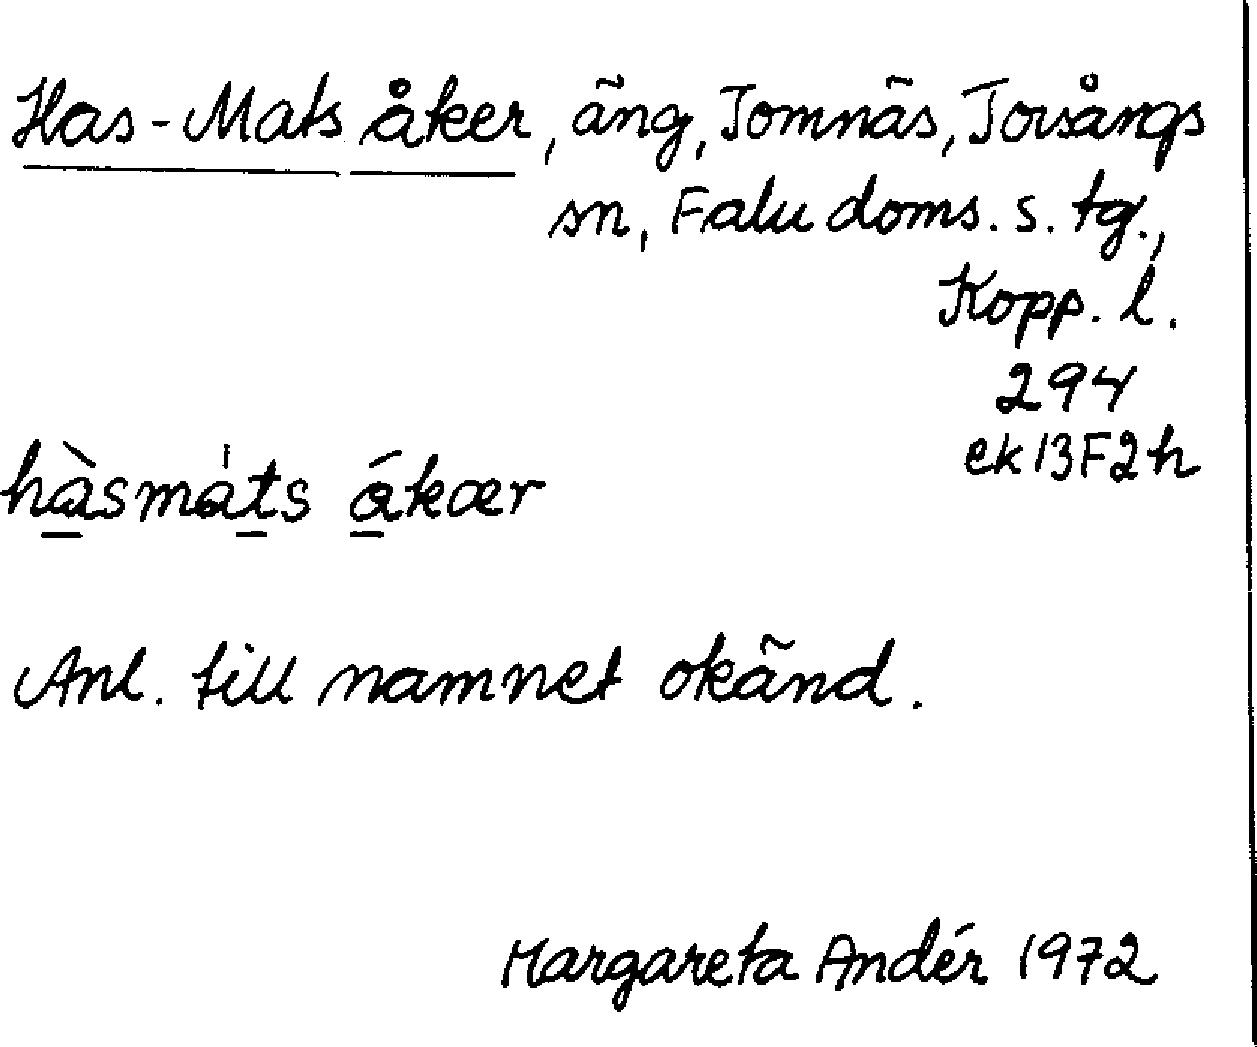 Has-Mats åker, äng, Tomnäs, Torsångs
sn, Falu doms. s. tg.,
Kopp. l.
294
ek 13F2h
hàsmá̍ts ákær
Anl. till namnet okänd.
Margareta Andér 1972